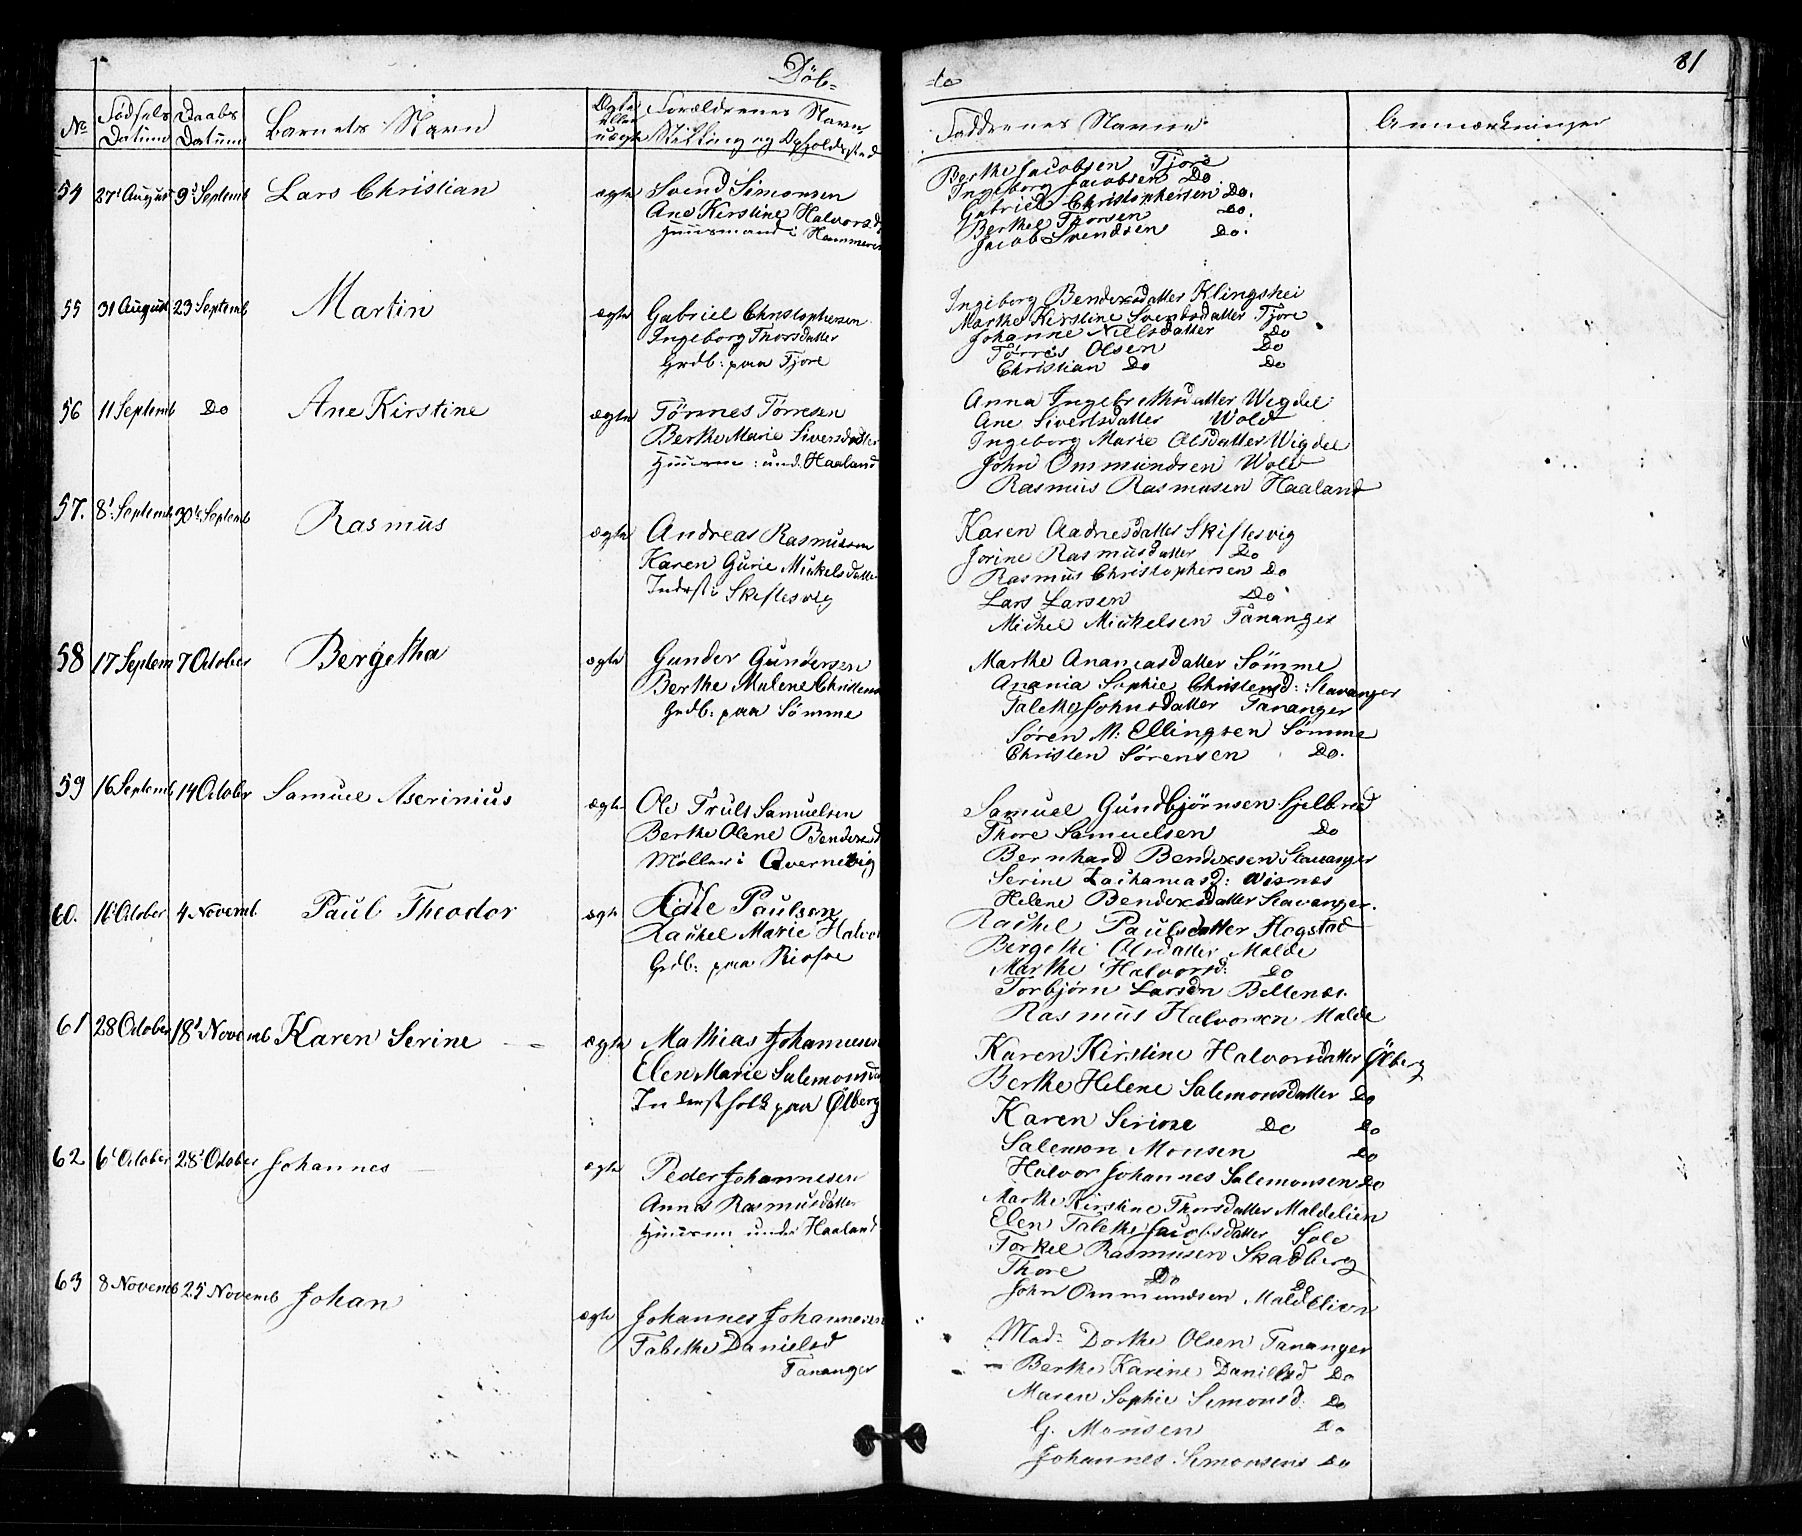 Döb-
te
81
No
Födsels Datum
Daabs Datum
Barnets Navn
Ægte eller uægte
Forældrenes Navn, Stilling og Opholdssted
Faddrenes Navne
Anmærkninger
54 27d August 9d Septemb Lars Christian ægte Svend Simonsen
Ane Kirstine Halvorsd
Huusmand i Hammeren
Berthe Jacobsen Tjore
Ingeborg Jacobsen Do
Gabriel Christophersen Do.
Berthel Thorsen Do.
Jacob Svendsen Do.
55 31 August 23 Septemb Martin ægte Gabriel Christophersen
Ingeborg Thorsdatter
Grdb: paa Tjore
Ingeborg Bendixsdatter Klingshei
Marthe Kirstine Svendsdatter Tjore
Johanne Nilsdatter Do
Törres Olsen Do
Christian Do Do
56 11 Septemb Do Ane Kirstine ægte Tönnes Törresen
Berthe Marie Siversdatter
Huusm: und: Haaland
Anna Ingebrethsdatter Wigdel
Ane Sivertsdatter Wold
Ingeborg Marie Olsdatter Wigdel
John Ommundsen Wold
Rasmus Rasmusen Haaland
57. 8d Septemb 30te Septemb Rasmus ægte Andreas Rasmussen
Karen Gurie Mickelsdatter
Inderst i Skiftesvig
Karen Aadnesdatter Skiftesvig
Jorine Rasmusdatter Do
Rasmus Christophersen Do
Lars Larsen Do
Michel Mickelsen Tananger
58 17 Septem 7 October Bergetha ægte Gunder Gundersen
Berthe Malene Christens
Grdb: paa Sömme
Marthe Ananiasdatter Sömme
Anania Sophie Christensd: Stavanger
Talette Johnsdatter Tananger
Søren M: Ellingsen Sömme
Christen Sörensen Do.
59 16 Septemb 14 October Samuel Aserinius ægte Ole Truls Samuelsen
Berthe Olene Bendixsd
Møller i Qvernevig
Samuel Gundbjörnsen Sjelbred
Thore Samuelsen Do
Bernhard Bendixsen Stavanger
Serine Zachariasd: Wisnes
Helene Bendixsdatter Stavanger.
60. 16 October 4 Novemb. Paul Theodor ægte Paulsen
Rachel Marie Halvor
Grdb: paa
Rachel Paulsdatter Hogstad
Bergethe Olsdatter Malde
Marthe Halvorsd: Do
Torbjörn Larsen
Rasmus Halvorsen Malde
61 28 October 18d Novemb Karen Serine ægte Mathias Johannesen
Elen Marie Salemonsd
Inderstfolk paa Ølberg
Karen Kirstine Halvorsdatter Ølberg
Berthe Helene Salemonsdatter Do
Karen Serine Do Do
Salemon Monsen Do
Halvor Johannes Salemonsen Do
62 6d October 28d October Johannes ægte Peder Johannesen
Anna Rasmusdatter
Huusm: under Haaland
Marthe Kirstine Thorsdatter Maldelien
Elen Talethe Jacobsdatter Sole
Torkel Rasmusen Skadberg
Thore Do Do
John Ommundsen Maldelien
63 8 Novemb 25 Novemb Johan ægte Johannes Johannesen
Talethe Danielsd
Tananger
Mad: Dorthe Olsen Tananger
" Berthe Karine Danielsd Do
Maren Sophie Simonsd: Do
G. Monsen Do
Johannes Simonsens Do